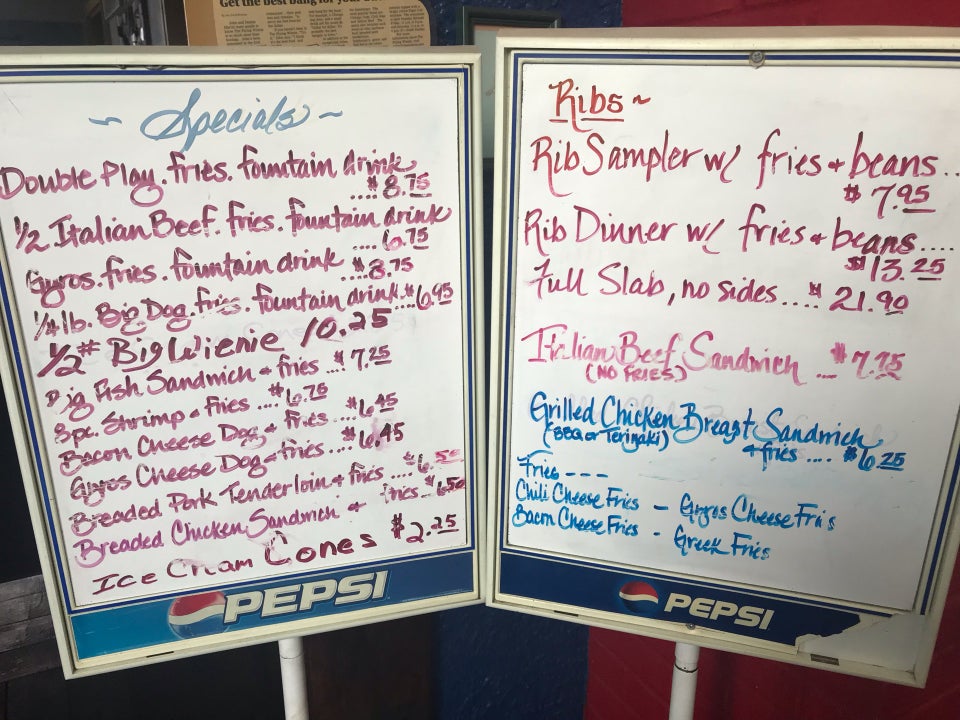 Get the best bang for your
~ Specials ~
Double Play. fries. fountain drink
....$8.75
1/2 Italian Beef. fries. fountain drink
.... 6.75
Gyros. fries. fountain drink ....$8.75
1/4 lb. Big Dog. fries. fountain drink.$...6.95
1/2# Big Wienie 10.25
Big Fish Sandwich & fries ... $7.25
8pc. Shrimp & fries .... $6.75
Bacon Cheese Dog & fries ... $6.45
Gyros Cheese Dog & fries ... $6.45
Breaded Pork Tenderloin & fries .... $6.50
Breaded Chicken Sandwich & fries - $6.50
Ice Cream Cones $2.25
PEPSI
Ribs ~
Rib Sampler w/ fries & beans...
$7.95
Rib Dinner w/ fries & beans....
$13.25
Full Slab, no sides....$21.90
Italian Beef Sandwich ... $7.75
(NO FRIES)
Grilled Chicken Breast Sandwich
(BBQ or Teriyaki) & fries .... $6.25
Fries - - -
Chili Cheese Fries - Gyros Cheese Fries
Bacon Cheese Fries - Greek Fries
PEPSI